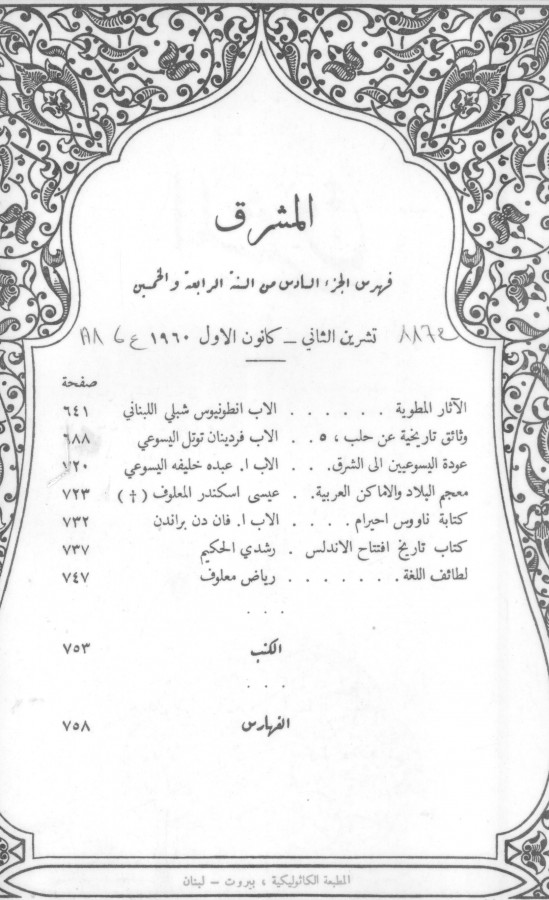 المشرق
فهرس الجزء السادس من السنة الرابعة والخمسين
تشرين الثاني – كانون الاول ١٩٦٠
صفحة
الآثار المطوية . . . . . . الاب انطونيوس شبلي اللبناني ٦٤١
وثائق تاريخية عن حلب ، ٥ . . الاب فردينان توتل اليسوعي ٦٨٨
عودة اليسوعيين الى الشرق . . . الاب ا. عبده خليفه اليسوعي ٧٢٠
معجم البلاد والاماكن العربية . . عيسى اسكندر المعلوف ( † ) ٧٢٣
كتابة ناووس احيرام . . . . الاب ا. فان دن براندن ٧٣٢
كتاب تاريخ افتتاح الاندلس . رشدي الحكيم ٧٣٧
لطائف اللغة . . . . . . . رياض معلوف ٧٤٧
. . .
الكتب ٧٥٣
. . .
الفهارس ٧٥٨
المطبعة الكاثوليكية ، بيروت – لبنان